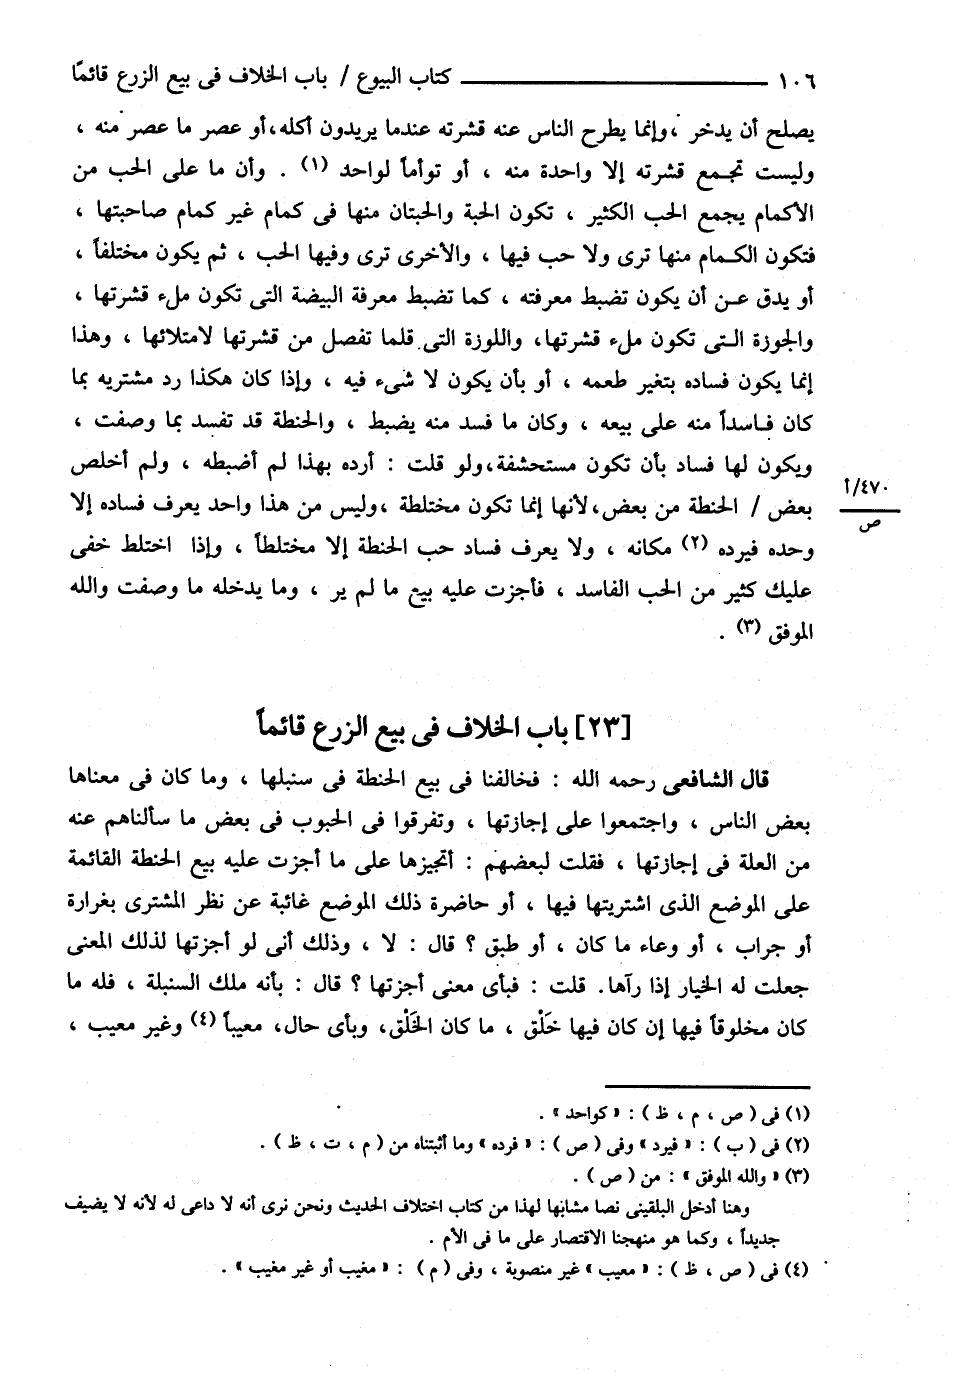 ١٠٦ ـــــــــــــــــــــ كتاب البيوع / باب الخلاف فى بيع الزرع قائمًا
يصلح أن يدخر ،وإنما يطرح الناس عنه قشرته عندما يريدون أكله،أو عصر ما عصر منه ،
وليست تجمع قشرته إلا واحدة منه ، أو توأماً لواحد (١) . وأن ما على الحب من
الأكمام يجمع الحب الكثير ، تكون الحبة والحبتان منها فى كمام غير كمام صاحبتها ،
فتكون الكمام منها ترى ولا حب فيها ، والأخرى ترى وفيها الحب ، ثم يكون مختلفاً ،
أو يدق عن أن يكون تضبط معرفته ، كما تضبط معرفة البيضة التى تكون ملء قشرتها ،
والجوزة التى تكون ملء قشرتها، واللوزة التى قلما تفصل من قشرتها لامتلائها ، وهذا
إنما يكون فساده بتغير طعمه ، أو بأن يكون لا شىء فيه ، وإذا كان هكذا رد مشتريه بما
كان فاسداً منه على بيعه ، وكان ما فسد منه يضبط ، والحنطة قد تفسد بما وصفت ،
ويكون لها فساد بأن تكون مستحشفة،ولو قلت : أرده بهذا لم أضبطه ، ولم أخلص
بعض / الحنطة من بعض،لأنها إنما تكون مختلطة ،وليس من هذا واحد يعرف فساده إلا
٤٧٠/أ
ص
وحده فيرده (٢) مكانه ، ولا يعرف فساد حب الحنطة إلا مختلطاً ، وإذا اختلط خفى
عليك كثير من الحب الفاسد ، فأجزت عليه بيع ما لم ير ، وما يدخله ما وصفت والله
الموفق (٣) .
[٢٣] باب الخلاف فى بيع الزرع قائماً
قال الشافعى رحمه الله : فخالفنا فى بيع الحنطة فى سنبلها ، وما كان فى معناها
بعض الناس ، واجتمعوا على إجازتها ، وتفرقوا فى الحبوب فى بعض ما سألناهم عنه
من العلة فى إجازتها ، فقلت لبعضهم : أتجيزها على ما أجزت عليه بيع الحنطة القائمة
على الموضع الذى اشتريتها فيها ، أو حاضرة ذلك الموضع غائبة عن نظر المشترى بغرارة
أو جراب ، أو وعاء ما كان ، أو طبق ؟ قال : لا ، وذلك أنى لو أجزتها لذلك المعنى
جعلت له الخيار إذا رآها. قلت : فبأى معنى أجزتها ؟ قال : بأنه ملك السنبلة ، فله ما
كان مخلوقاً فيها إن كان فيها خَلْق ، ما كان الخَلْق، وبأى حال، معيباً (٤) وغير معيب ،
(١) فى ( ص ، م ، ظ ) : « كواحد » .
(٢) فى ( ب ) : « فيرد » وفى ( ص ) : « فرده » وما أثبتناه من ( م ، ت ، ظ ) .
(٣) « والله الموفق » : من ( ص ) .
وهنا أدخل البلقينى نصا مشابها لهذا من كتاب اختلاف الحديث ونحن نرى أنه لا داعى له لأنه لا يضيف
جديداً ، وكما هو منهجنا الاقتصار على ما فى الأم .
(٤) فى ( ص ، ظ ) : « معيب » غير منصوبة ، وفى ( م ) : « مغيب أو غير مغيب » .